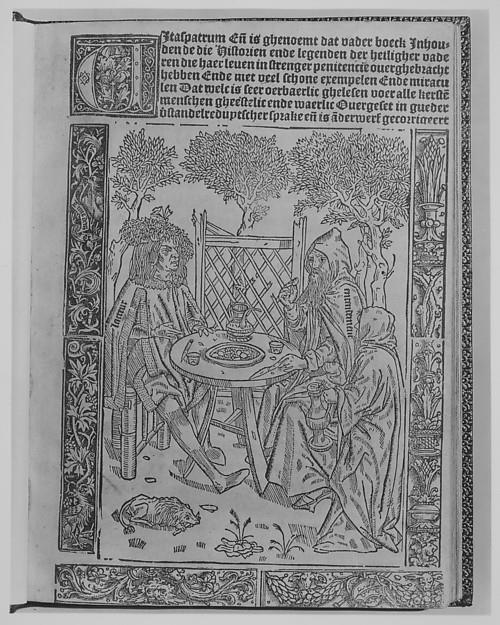 Vitaspatrum Eñ is ghenoemt dat vader boeck Inhou-
den de die Historien ende legenden der heiligher vade
ren die haer leuen in strenger penitencie ouerghebracht
hebben Ende met veel schone exempelen Ende miracu
len Dat welc is seer oerbaerlic ghelesen voer alle kerstē
menschen gheestelic ende waerlic Ouergeset in gueder
v̄standelre duytscher sprake eñ is āderwerf gecorrigeert